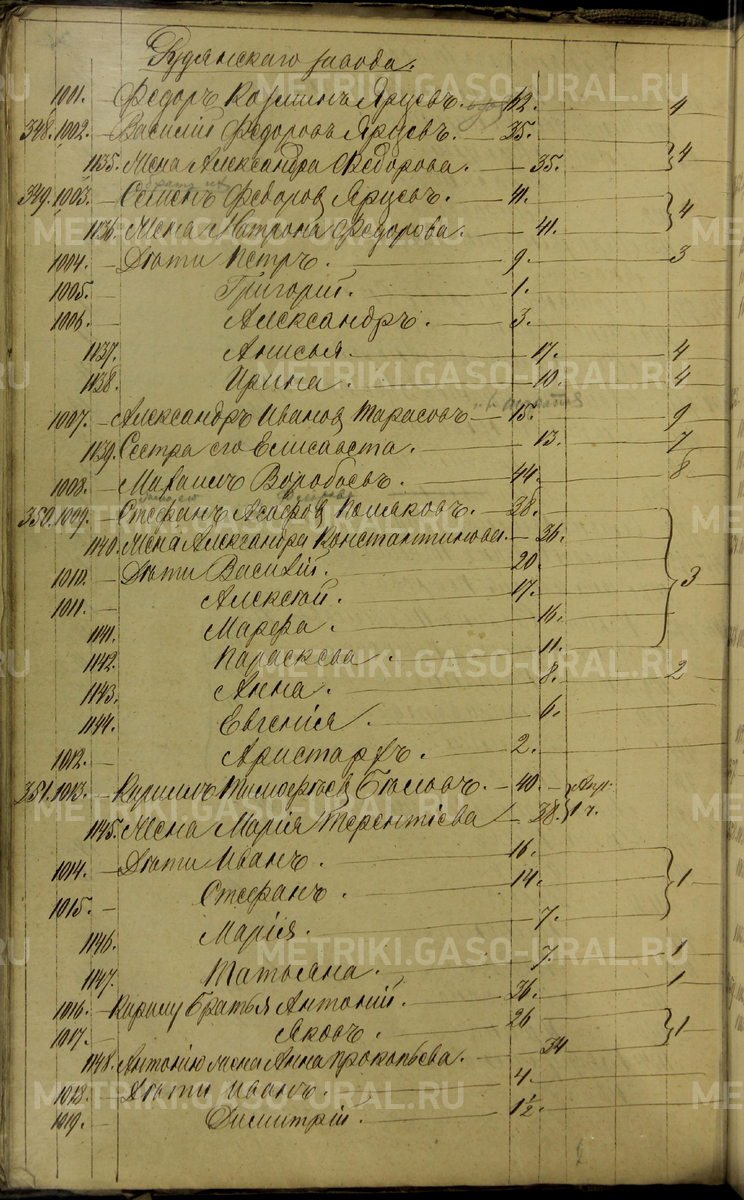 Рудянскаго завода.
1001. Федоръ Козминъ Ярцевъ. 4
348. 1002. Василій Федоровъ Ярцевъ. 35.
1135. Жена Александра Федорова. 35. 4
349. 1003. Семенъ Федоровъ Ярцевъ. 41.
1136. Жена Матрона Федорова. 41. 4
1004. Дѣти Петръ. 9. 3
1005. Григорій. 1.
1006. Александръ. 3.
1137. Анисья. 17. 4
1138. Ирина. 10. 4
1007. Александръ Ивановъ Тарасовъ 15. 9
1139. Сестра его Елисавета. 13. 7
1008. Михаилъ Воробьевъ. 44. 8
350. 1009. Стефанъ Поляковъ. 38.
1140. Жена Александра Константинова. 36.
1010. Дѣти Василій. 20. 3
1011. Алексѣй. 17.
1141. Марфа. 16.
1142. Параскева. 11.
1143. Анна. 8. 2
1144. Евгенія. 6.
1012. Аристархъ. 2.
351. 1013. Кириллъ Тимофеевъ Бѣловъ. 40.
1145. Жена Марія Терентіева 38. 1 ч.
1014. Дѣти Иванъ. 16.
1015. Стефанъ. 14. 1
1146. Марія. 7.
1147. Татьяна. 7. 1
1016. Кирилу Братья Антоній. 36. 1
1017. Яковъ. 26 1
1148. Антонію жена Анна Прокопьева. 34
1018. Дѣти Иванъ. 4.
1019. Димитрій. 1½.
METRIKI.GASO-URAL.RU